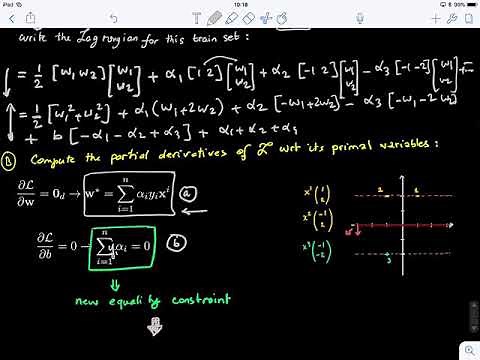 iPad 10:18
write the Lagrangian for this train set :
L = 1/2 [w₁ w₂] [w₁ w₂] + α₁ [1 2] [w₁ w₂] + α₂ [-1 2] [w₁ w₂] - α₃ [-1 -2] [w₁ w₂] +...
= 1/2 [w₁² + w₂²] + α₁ (w₁ + 2w₂) + α₂ [-w₁ + 2w₂] - α₃ [-w₁ - 2w₂]
+ b [-α₁ - α₂ + α₃] + α₁ + α₂ + α₃
B Compute the partial derivatives of L wrt its primal variables :
∂L/∂w = 0_d → w* = ∑_{i=1}^{n} α_i y_i x^i a
∂L/∂b = 0 → ∑_{i=1}^{n} y_i α_i = 0 b
⇓
new equality constraint
⇓
x¹ (1 2)
x² (-1 2)
x³ (-1 -2)
2 1
3